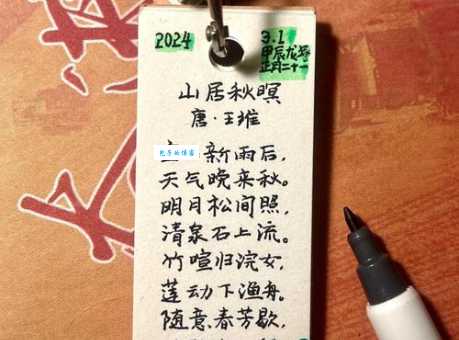 2024
3.1
甲辰龙年
正月二十一
山居秋暝
唐·王维
新雨后,
天气晚来秋。
明月松间照,
清泉石上流。
竹喧归浣女,
莲动下渔舟。
随意春芳歇,